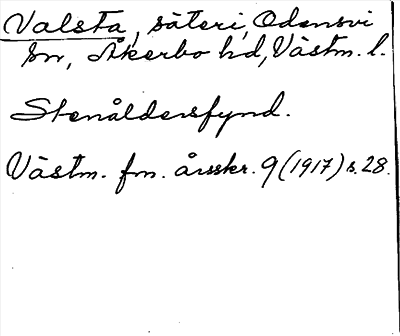 Valsta, säteri, Odensvi
sn, Åkerbo hd, Västm. l.
Stenåldersfynd.
Västm. fm. årsskr. 9 (1917) s. 28.